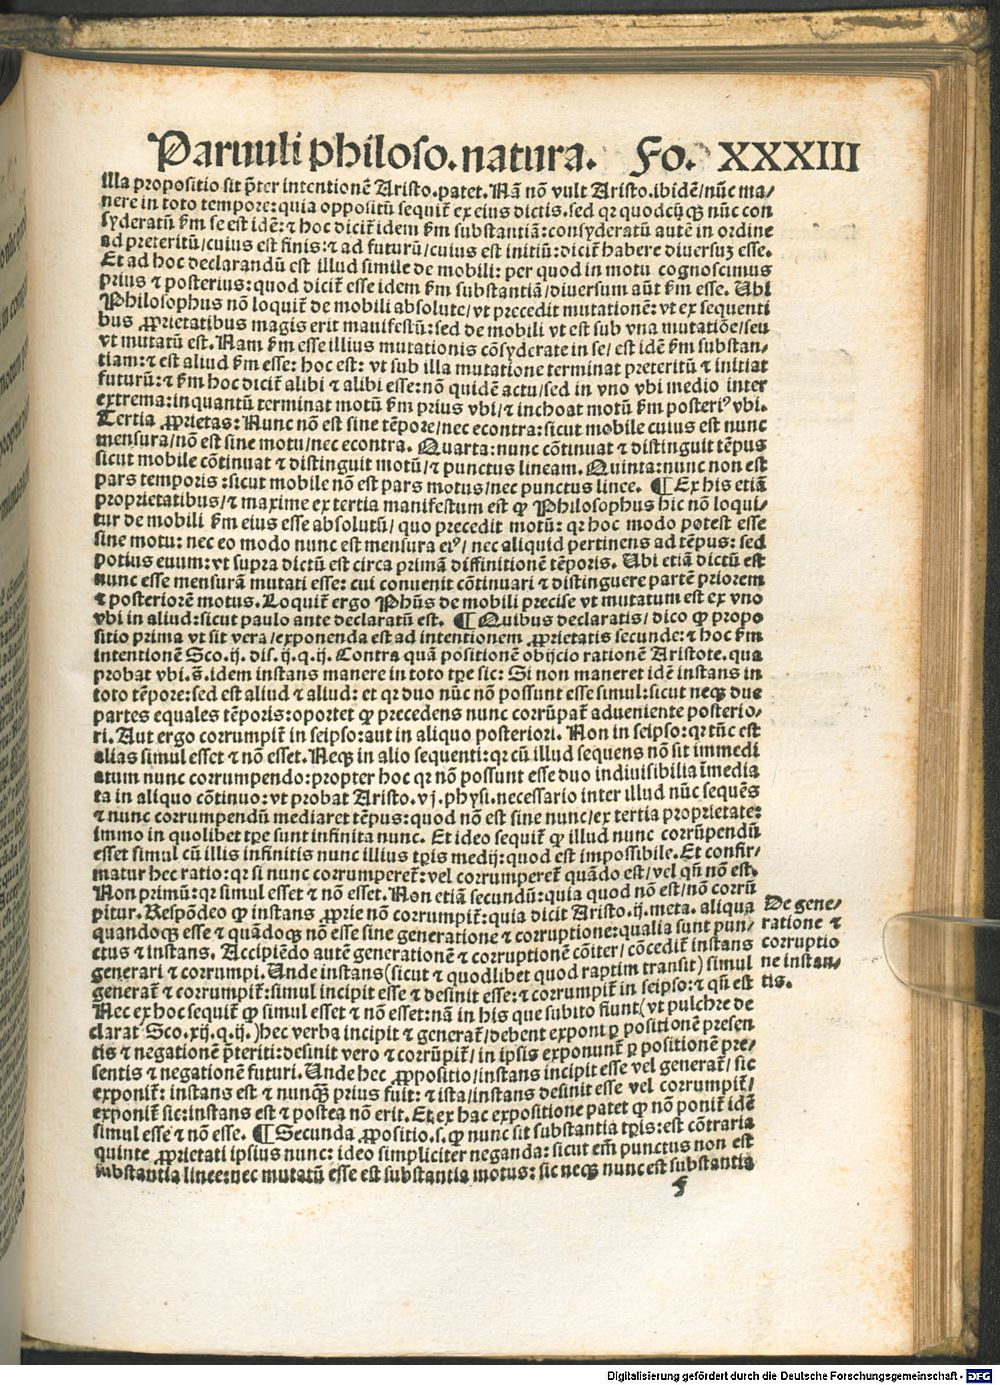 Paruuli philoso. natura. Fo. XXXIII
illa propositio sit p̃ter intentionē Aristo. patet. Nā nō vult Aristo. ibidē/ nūc ma/
nere in toto tempore: quia oppositū sequit̃ ex eius dictis. sed qr quodcūqꝫ nūc con
syderatū fm se est idē: ⁊ hoc dicit̃ idem fm substantiā: consyderatū autē in ordine
ad preteritū/ cuius est finis: ⁊ ad futurū/ cuius est initiū: dicit̃ habere diuersuꝫ esse.
Et ad hoc declarandū est illud simile de mobili: per quod in motu cognoscimus
prius ⁊ posterius: quod dicit̃ esse idem fm substantiā/ diuersum aūt fm esse. Ubi
Philosophus nō loquit̃ de mobili absolute/ vt precedit mutationē: vt ex sequenti
bus ꝓprietatibus magis erit manifestū: sed de mobili vt est sub vna mutatiōe/ seu
vt mutatū est. Nam fm esse illius mutationis cōsyderate in se/ est idē fm substan/
tiam: ⁊ est aliud fm esse: hoc est: vt sub illa mutatione terminat preteritū ⁊ initiat
futurū: ⁊ fm hoc dicit̃ alibi ⁊ alibi esse: nō quidē actu/ sed in vno vbi medio inter
extrema: inquantū terminat motū fm prius vbi/ ⁊ inchoat motū fm posteriꝰ vbi.
Tertia ꝓprietas: Nunc nō est sine tēpore/ nec econtra: sicut mobile cuius est nunc
mensura/ nō est sine motu/ nec econtra. Quarta: nunc cōtinuat ⁊ distinguit tēpus
sicut mobile cōtinuat ⁊ distinguit motū/ ⁊ punctus lineam. Quinta: nunc non est
pars temporis: sicut mobile nō est pars motus/ nec punctus linee. ¶ Ex his etiā
proprietatibus/ ⁊ maxime ex tertia manifestum est ꝙ Philosophus hic nō loqui/
tur de mobili fm eius esse absolutū/ quo precedit motū: qr hoc modo potest esse
sine motu: nec eo modo nunc est mensura eiꝰ/ nec aliquid pertinens ad tēpus: sed
potius euum: vt supra dictū est circa primā diffinitionē tēporis. Ubi etiā dictū est
nunc esse mensurā mutati esse: cui conuenit cōtinuari ⁊ distinguere partē priorem
⁊ posteriorē motus. Loquit̃ ergo Phūs de mobili precise vt mutatum est ex vno
vbi in aliud: sicut paulo ante declaratū est. ¶ Quibus declaratis/ dico ꝙ propo
sitio prima vt sit vera/ exponenda est ad intentionem ꝓprietatis secunde: ⁊ hoc fm
intentionē Sco. ij. dis. ij. q. ij. Contra quā positionē obijcio rationē Aristote. qua
probat vbi. s̃. idem instans manere in toto tꝑe sic: Si non maneret idē instans in
toto tēpore: sed est aliud ⁊ aliud: et qr duo nūc nō possunt esse simul: sicut neqꝫ due
partes equales tēporis: oportet ꝙ precedens nunc corrūpat̃ adueniente posterio/
ri. Aut ergo corrumpit̃ in seipso: aut in aliquo posteriori. Non in seipso: qr tūc est
alias simul esset ⁊ nō esset. Neqꝫ in alio sequenti: qr cū illud sequens nō sit immedi
atum nunc corrumpendo: propter hoc qr nō possunt esse duo indiuisibilia īmedia
ta in aliquo cōtinuo: vt probat Aristo. vj. physi. necessario inter illud nūc sequēs
⁊ nunc corrumpendū mediaret tēpus: quod nō est sine nunc/ ex tertia proprietate:
immo in quolibet tꝑe sunt infinita nunc. Et ideo sequit̃ ꝙ illud nunc corrūpendū
esset simul cū illis infinitis nunc illius tꝑis medij: quod est impossibile. Et confir/
matur hec ratio: qr si nunc corrumperet̃: vel corrumperet̃ quādo est/ vel qñ nō est.
Non primū: qr simul esset ⁊ nō esset. Non etiā secundū: quia quod nō est/ nō corrū
pitur. Respōdeo ꝙ instans ꝓprie nō corrumpit̃: quia dicit Aristo. ij. meta. aliqua
quandoqꝫ esse ⁊ quādoqꝫ nō esse sine generatione ⁊ corruptione: qualia sunt pun/
ctus ⁊ instans. Accipiēdo autē generationē ⁊ corruptionē cōiter/ cōcedit̃ instans
generari ⁊ corrumpi. Unde instans (sicut ⁊ quodlibet quod raptim transit) simul
generat̃ ⁊ corrumpit̃: simul incipit esse ⁊ desinit esse: ⁊ corrumpit̃ in seipso: ⁊ qñ est
Nec ex hoc sequit̃ ꝙ simul esset ⁊ nō esset: nā in his que subito fiunt (vt pulchre de
clarat Sco. xij. q. ij.) hec verba incipit ⁊ generat̃/ debent exponi ꝑ positionē presen
tis ⁊ negationē p̃teriti: desinit vero ⁊ corrūpit̃/ in ipsis exponunt̃ ꝑ positionē pre/
sentis ⁊ negationē futuri. Unde hec ꝓpositio/ instans incipit esse vel generat̃/ sic
exponit̃: instans est ⁊ nunqꝫ prius fuit: ⁊ ista/ instans desinit esse vel corrumpit̃/
exponit̃ sic: instans est ⁊ postea nō erit. Et ex hac expositione patet ꝙ nō ponit̃ idē
simul esse ⁊ nō esse. ¶ Secunda ꝓpositio. s. ꝙ nunc sit substantia tꝑis: est cōtraria
quinte ꝓprietati ipsius nunc: ideo simpliciter neganda: sicut em̄ punctus non est
substantia linee: nec mutatū esse est substantia motus: sic neqꝫ nunc est substantia
f
De gene/
ratione ⁊
corruptio
ne instan/
tis.
Digitalisierung gefördert durch die Deutsche Forschungsgemeinschaft - DFG